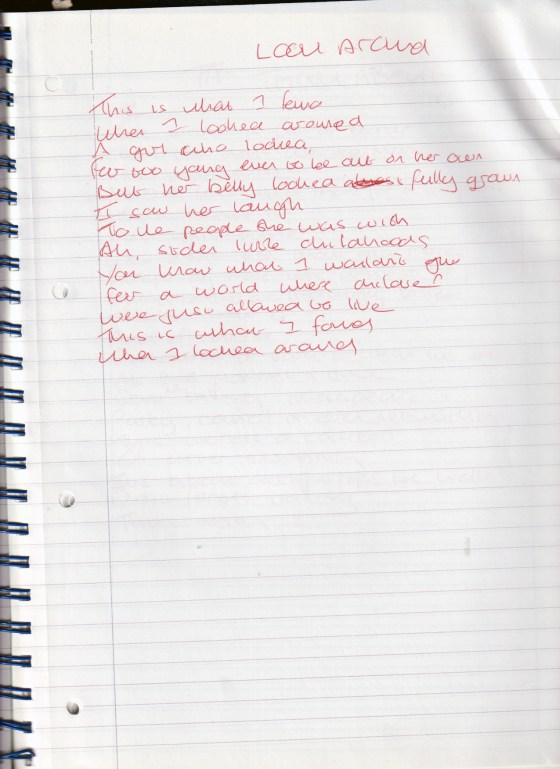 Look Around
This is what I found
When I looked around
A girl who looked,
Far too young ever to be out on her own
But her belly looked fully grown
I saw her laugh
To the people she was with
Ah, stolen little childhoods
You know what I wouldn't give
For a world where children
Were just allowed to live
This is what I found
When I looked around